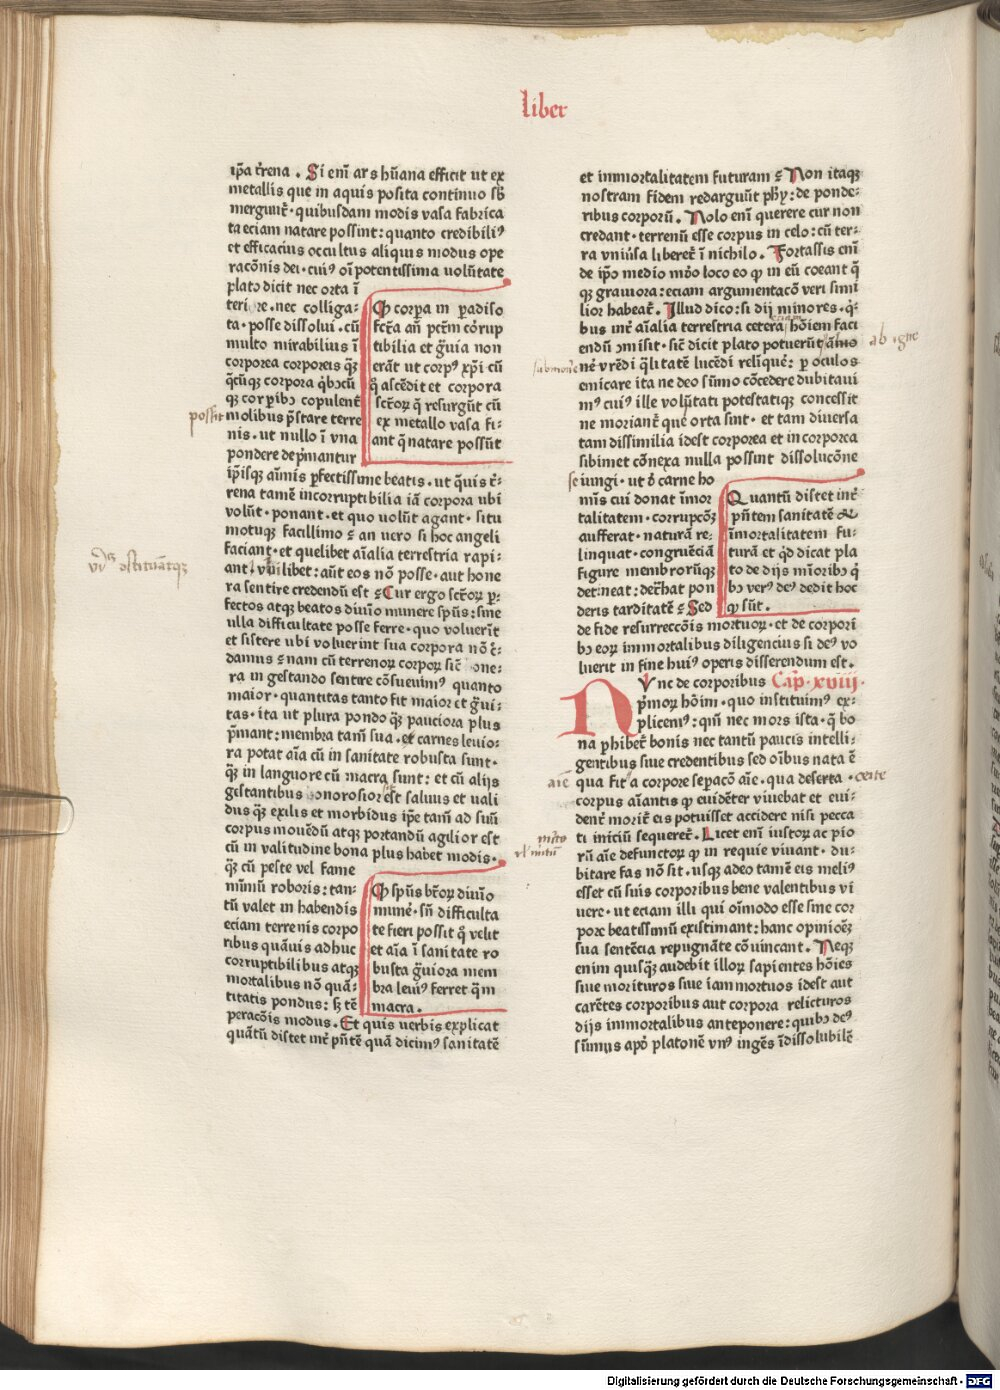 liber
ip̄a t̄rena . Si eni᷒ ars hūana efficit ut ex
metallis que in aquis posita continuo sb̄
mergunt᷒ · quibusdam modis vasa fabrica
ta eciam natare possint : quanto credibiliꝰ
et efficacius occultus aliquis modus ope
racōnis dei · cuiꝰ oīpotentissima volūtate
plato dicit nec orta ī
terire . nec colliga⸗
ta · posse dissolui . cū
multo mirabilius ī
corporea corporeis qꝫ
qūcūqꝫ corpora qͥbꝰcū
qꝫ corpͥbꝰ copulent᷒
molibus p̄stare terre
nis . ut nullo ī vna
pondere dep̄mantur
Ꝙ corpa in paradiso
fct̄a añ pct̄m cōrup
tibilia et gͣuia non
erāt ut corpꝰ xp̄i cū
q̄ ascēdit et corpora
sct̄oꝝ q̄ resurgūt cū
ex metallo vasa fi⸗
ant q̄ natare possūt
possit
ip̄isqꝫ aīmis ꝑfectissime beatis . ut quis t̄⸗
rena tamē incorruptibilia iā corpora ubi
volūt · ponant . et quo uolūt agant . situ
motuqꝫ facillimo ⁊ an uero si hoc angeli
faciant · et quelibet aīalia terrestria rapi⸗
ant vbilibet : aūt eos nō posse . aut hone
ra sentire credendū est ⁊ Cur ergo sct̄oꝝ ꝑ⸗
fectos atqꝫ beatos diuīo munere spūs : sine
ulla difficultate posse ferre · quo voluerīt
et sistere ubi voluerint sua corpora nō c̄⸗
damus ⁊ nam cū terrenoꝝ corpoꝝ sic᷒ one⸗
ra in gestando sentire cōsueuimꝰ quanto
maior · quantitas tanto fit maior et gͣui⸗
tas · ita ut plura pondo qꝫ pauciora plus
p̄mant : membra tam̄ sua . et carnes leuio⸗
ra potat aīa cū in sanitate robusta sunt ·
qꝫ in languore cū macra sunt : et cū alijs
gestantibus honorosior est saluus et uali
dus qꝫ exilis et morbidus ip̄e tam̄ ad suū
corpus mouēdū atqꝫ portandū agilior est
cū in valitudine bona plus habet modis .
qꝫ cū peste vel fame
mīmū roboris : tan⸗
tū valet in habendis
eciam terrenis corpo
ribus quāuis adhuc
corruptibilibus atqꝫ
mortalibus nō quā⸗
titatis pondus : sꝫ tē
peracōis modus . Et quis uerbis explicat
quātū distet int᷒ p̄ntē quā dicimꝰ sanitatē
Ꝙ spūs bt̄oꝝ diuīo
mune᷒ · sn̄ difficulta
te fieri possit q̄ velit
et aīa ī sanitate ro
busta gͣuiora mem
bra leuiꝰ ferret qͣm
macra .
et immortalitatem futuram ⁊ Non itaqꝫ
nostram fidem redarguūt phy : de ponde⸗
ribus corporū . Nolo enī querere cur non
credant · terrenū esse corpus in celo : cū ter⸗
ra vniūsa liberet᷒ ī nichilo . Fortassis enī
de ip̄o medio mūo loco eo ꝙ in eū coeant q̄
qꝫ grauiora : eciam argumentacō veri simi
lior habeat᷒ . Illud dico : si dij minores . qͥ⸗
bus int᷒ aīalia terrestria cetera hōiem faci
endū ꝯmisit · sic᷒ dicit plato potuerūt
ne᷒ vrēdi qͣlitatē lucēdi relīque : ꝑ oculos
emicare ita ne deo sūmo cōcedere dubitaui
mꝰ cuiꝰ ille volūtati potestatiqꝫ concessit
ne moriant᷒ que orta sint · et tam diuersa
tam dissimilia idest corporea et in corporea
sibimet cōnexa nulla possint dissolucōne
seiungi · ut ꝺ carne ho
mīs cui donat īmor
talitatem · corrupcōꝫ
aufferat · naturā re⸗
linquat · congruēciā
figure membrorūqꝫ
detineat : det̄hat pon
deris tarditatē ⁊ Sed
Quantū distet int᷒
pn̄tem sanitatē &
īmortalitatem fu⸗
turā et qͩ dicat pla
to de dijs mīoribꝰ q̄
bꝰ verꝰ deꝰ dedit hoc
ꝙ sūt .
ab igne
de fide resurreccōis mortuoꝝ · et de corpori
bꝰ eoꝝ immortalibus diligencius si deꝰ vo
luerit in fine huiꝰ operis disserendum est .
NVnc de corporibus Cap̄ · xviij ·
p̄moꝝ hoīm · quo instituimꝰ ex⸗
plicemꝰ : qm̄ nec mors ista · q̄ bo
na phibet᷒ bonis nec tantū paucis intelli⸗
gentibus siue credentibus sed oībus nata ē
qua fit᷒ a corpore sepacō aīe . qua deserta · certe
corpus aīantis ꝙ euidēter viuebat et eui⸗
dent᷒ morit᷒ eis potuisset accidere nisi pecca
ti iniciū sequeret᷒ . Licet enī iustoꝝ ac pio
rū aīe defunctoꝝ ꝙ in requie viuant · du⸗
bitare fas nō sit . usqꝫ adeo tamē eis meliꝰ
esset cū suis corporibus bene valentibus vi
uere · ut eciam illi qui oīmodo esse sine cor
pore beatissimū existimant : hanc opinioēꝫ
sua sentēcia repugnāte cōuincant . Neqꝫ
enim quisqꝫ audebit illoꝝ sapientes hōies
siue morituros siue iam mortuos idest aut
carētes corporibus aut corpora relicturos
dijs immortalibus anteponere : quibꝰ deꝰ
sūmus apꝺ platonē vnꝰ ingēs īdissolubilē
aīe
Digitalisierung gefördert durch die Deutsche Forschungsgemeinschaft - DFG